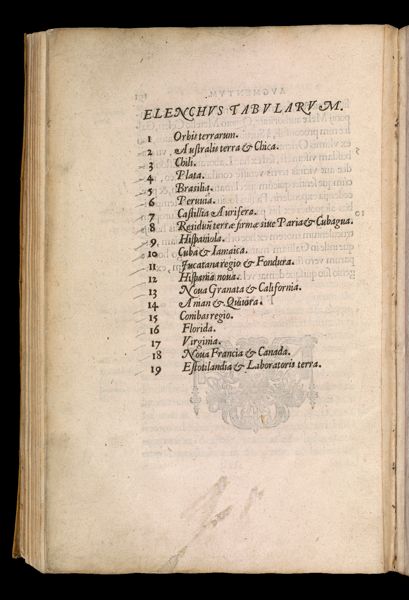 ELENCHVS TABVLARVM.
1 Orbis terrarum.
2 Australis terra & Chica.
3 Chili.
4 Plata.
5 Brasilia.
6 Peruuia.
7 Castillia Aurifera.
8 Residuũ terræ firmæ siue Paria & Cubagua.
9 Hispaniola.
10 Cuba & Iamaica.
11 Jucatana regio & Fondura.
12 Hispania noua.
13 Noua Granata & California.
14 Anian & Quiuira.
15 Conibas regio.
16 Florida.
17 Virginia.
18 Noua Francia & Canada.
19 Estotilandia & Laboratoris terra.